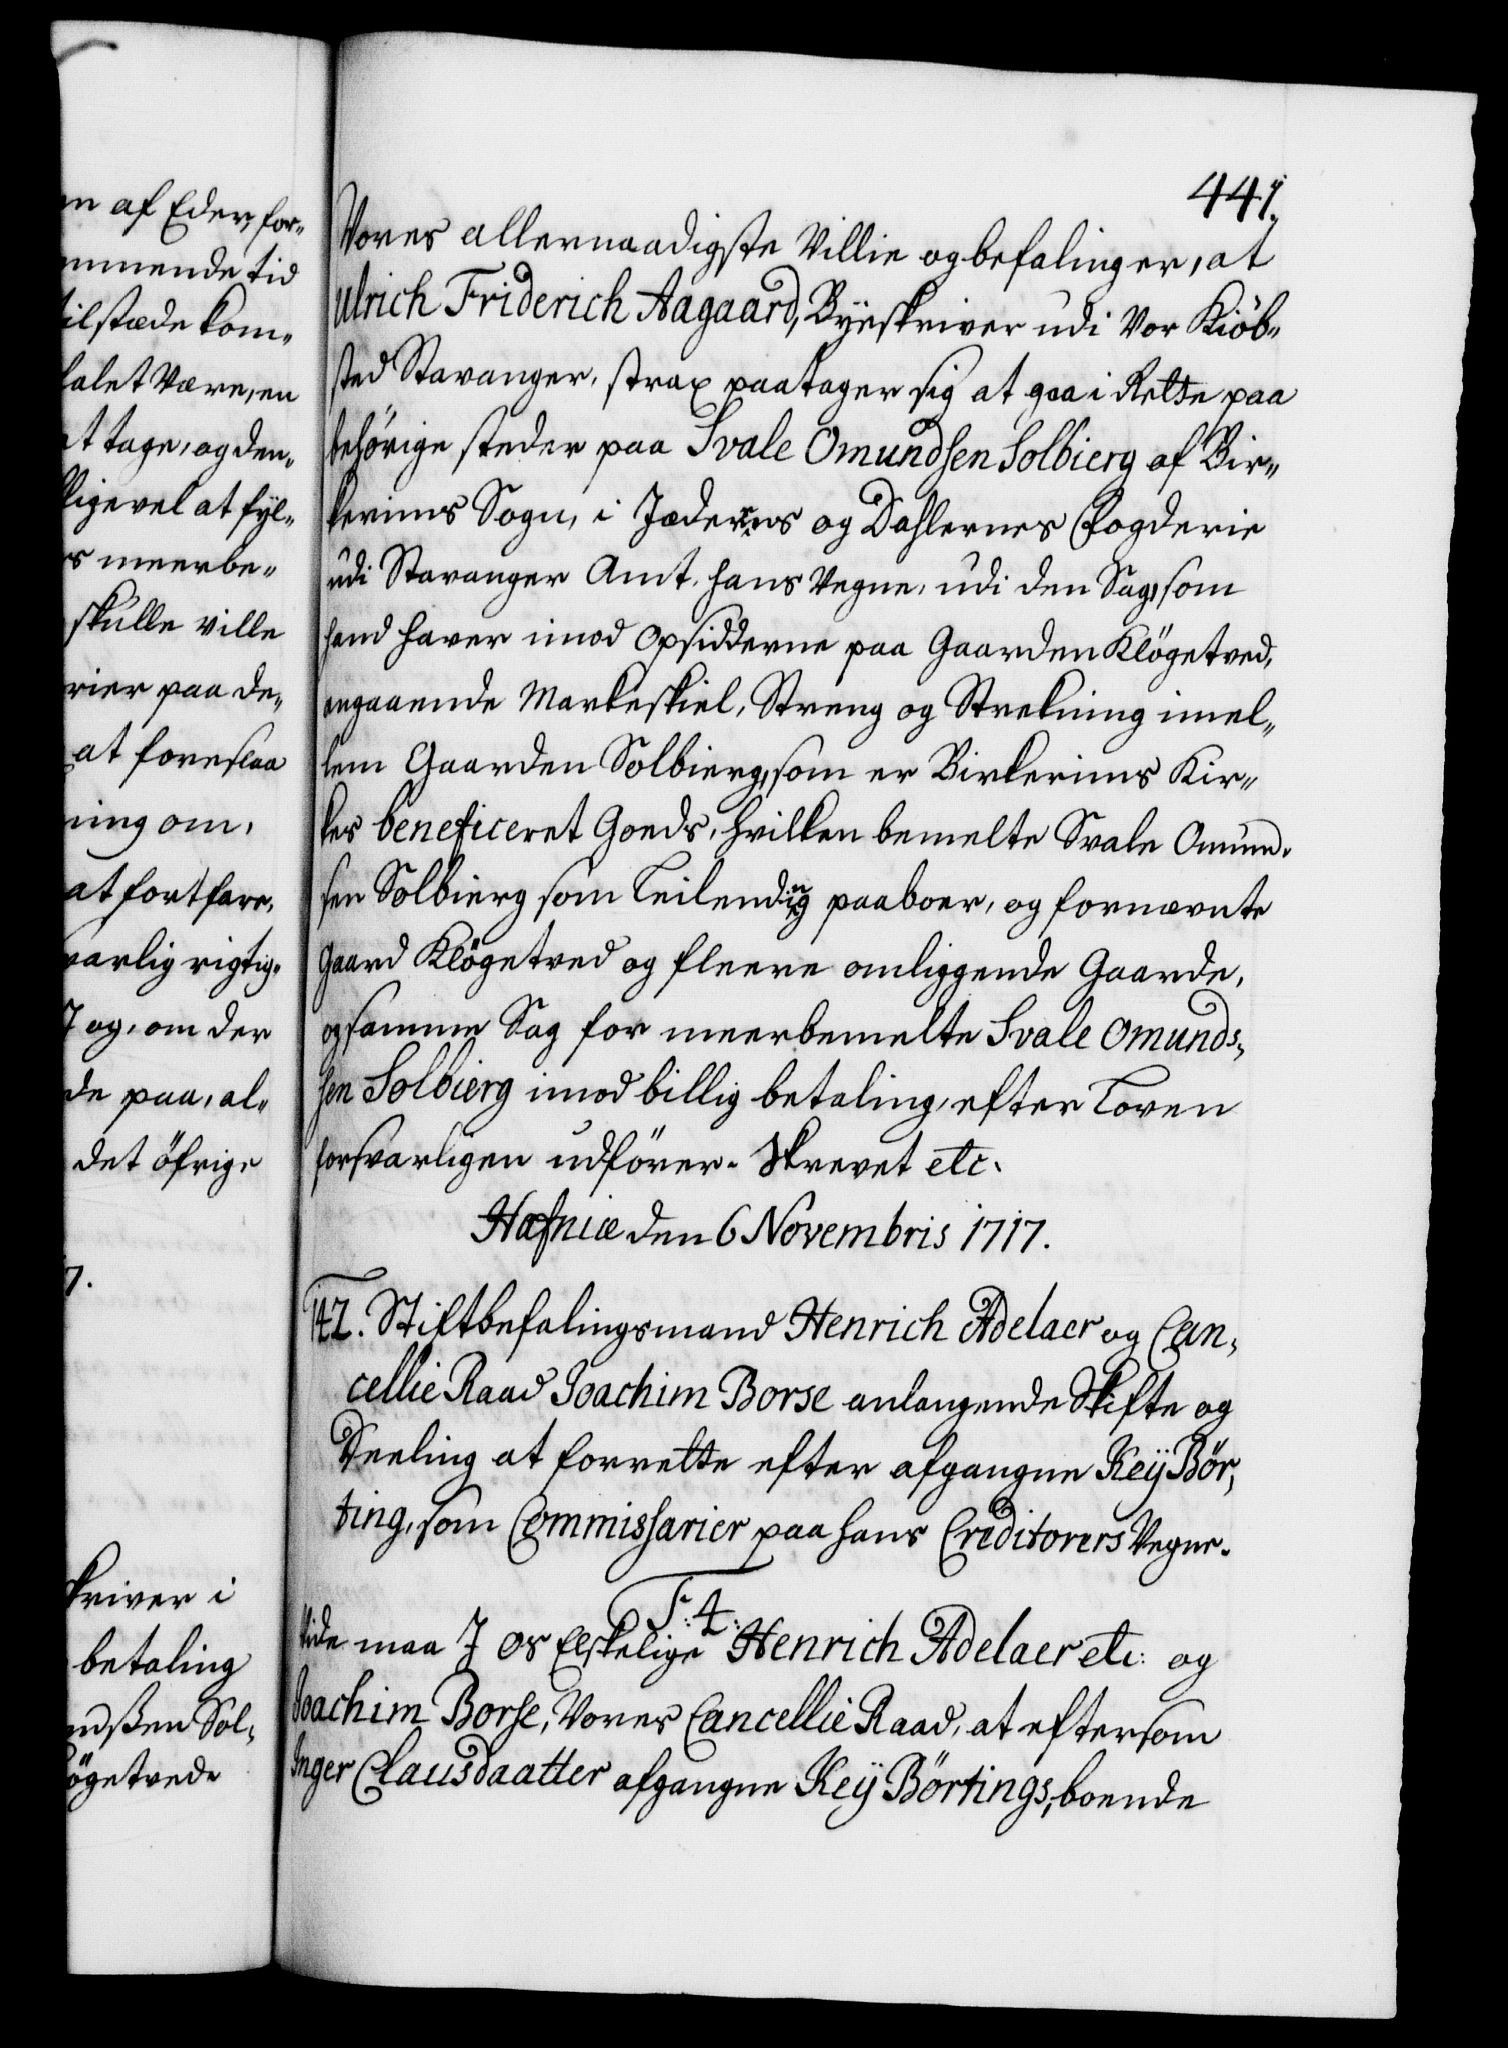 en af Eder, for-
mmende tid
tilstæde kom-
falet Være, en
at tage, og den-
lligevel at fyl-
s meerbe-
skulle ville
rier paa de-
at foreslaa
ning om,
at fortfare,
varlig rigtig-
J og, om der
de paa, al-
det öfrige
7.
skriver i
betaling
undßen Sol-
lögetvede
441.
Vores allernaadigste Villie og befalinger, at
Ulrich Friderich Aagaard, Byeskriver udi Vor Kiöb-
sted Stavanger, strax paatager sig at gaa i Rette paa
behörige steder paa Svale Omundsen Solbierg af Bir-
kerims Sogn, i Jæderens og Dahlernes Fogderie
udi Stavanger Amt, hans Vegne, udi den Sag, som
hand haver imod Opsidderne paa Gaarden Klögetved,
angaaende Markeskiel, Streng og Strekning imel-
lem Gaarden Solbierg, som er Birkerims Kir-
kes beneficeret Goeds, hvilken bemelte Svale Omund-
sen Solbierg som Leilending paaboer, og fornævnte
Gaard Klögetved og fleere omliggende Gaarde,
og samme Sag for meerbemelte Svale Omunds-
sen Solbierg imod billig betaling, efter Loven
forsvarligen udförer. Skrevet etc.
Hafniæ den 6 Novembris 1717.
142. Stiftbefalingsmand Henrich Adelaer og Can-
cellie Raad Joachim Borse anlangende Skifte og
Deeling at forrette efter afgangne Keÿ Bör-
ting, som Commissarier paa hans Creditorers Vegne.
F. 4.
Vide maa J Os Elskelige Henrich Adelaer etc: og
Joachim Borse, Vores Cancellie Raad, at eftersom
Inger Clausdaatter afgangne Keÿ Börtings, boende